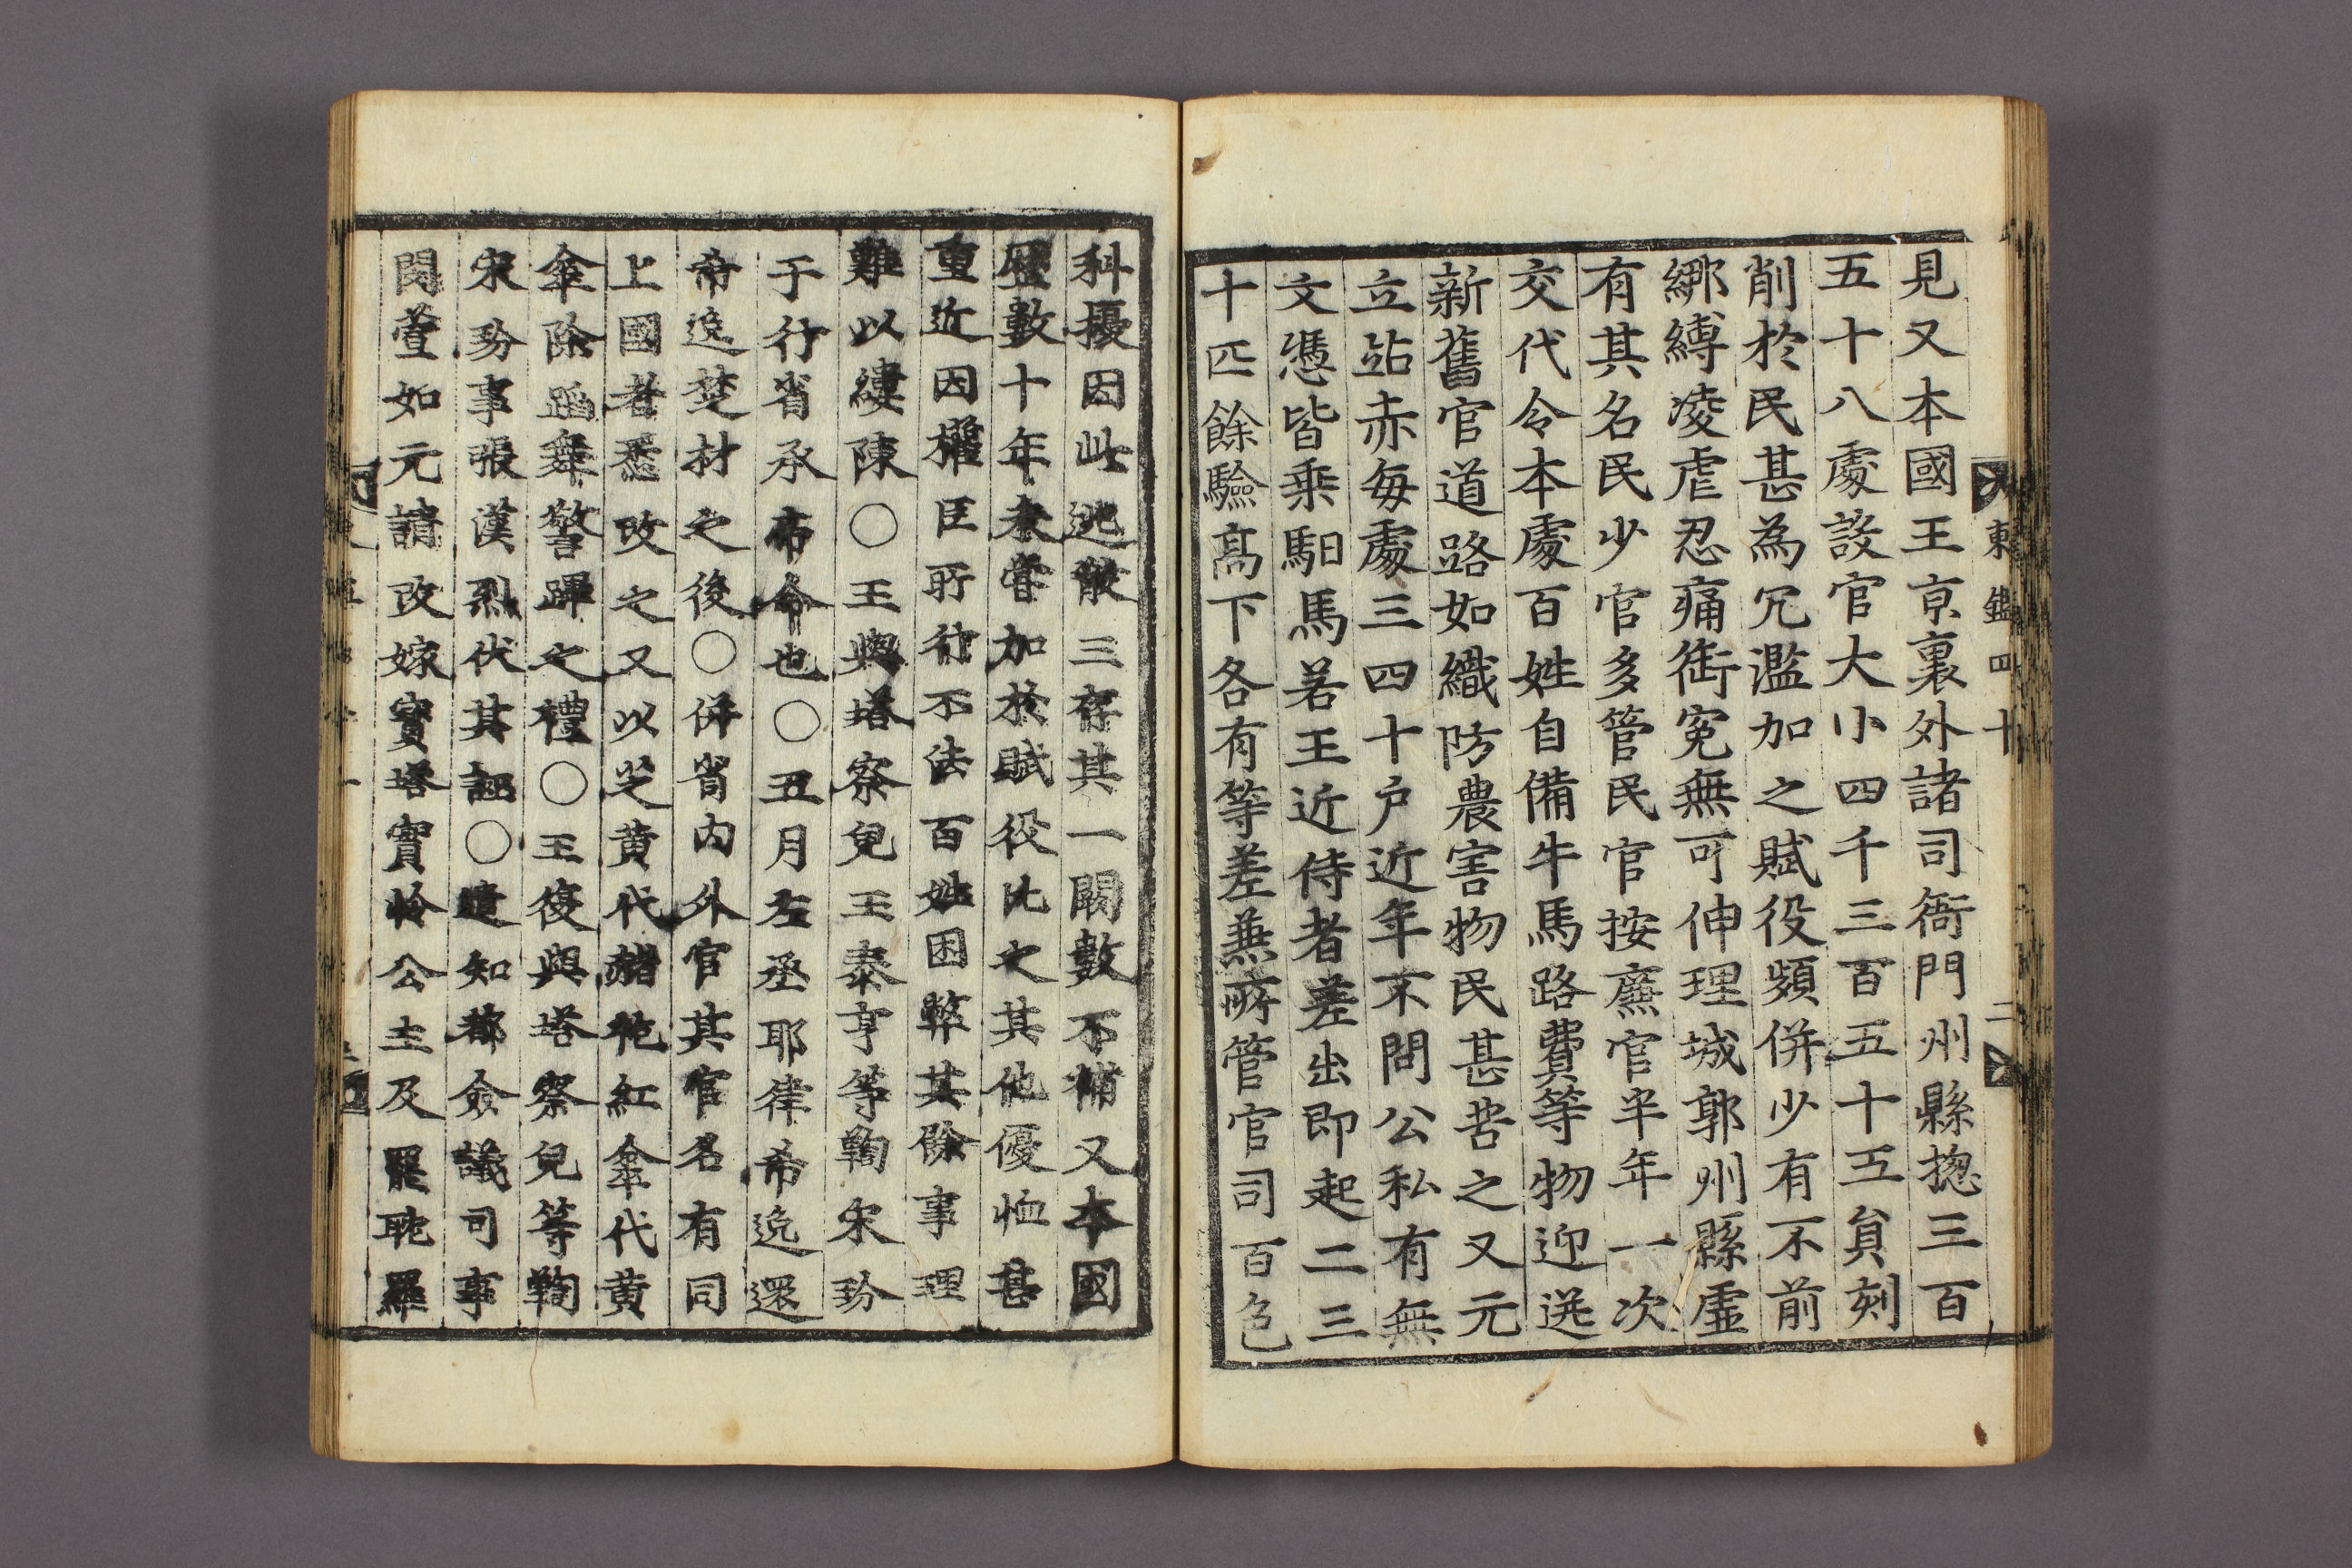 見又本國王京裏外諸司衙門州縣揔三百
五十八處設官大小四千三百五十五貟刻
削於民甚為冗濫加之賦役頻併少有不前
綁縛凌虐忍痛銜寃無可伸理城郭州縣虛
有其名民少官多管民官按廉官半年一次
交代令本處百姓自備牛馬路費等物迎送
新舊官道路如織防農害物民甚苦之又元
立站赤每處三四十戶近年不問公私有無
文憑皆乘馹馬若王近侍者差出即起二三
十匹餘驗髙下各有等差兼㪽管官司百色
東鑑四十 二
科擾因此逃散三存其一闕數不補又本國
歷數十年未嘗加於賦役比之其他優恤甚
重近因權臣所行不法百姓困弊其餘事理
難以縷陳○王與塔察兒王泰亨等鞫宋玢
于行省承帝命也○五月左丞耶律希逸還
希逸楚材之後○併省內外官其官名有同
上國者悉改之又以芝黃代赭袍紅傘代黃
傘除蹈舞警蹕之禮○王復與塔察兒等鞫
宋玢事張漢烈伏其誣○遣知都僉議司事
閔萱如元請改嫁寶塔實怜公主及罷耽羅